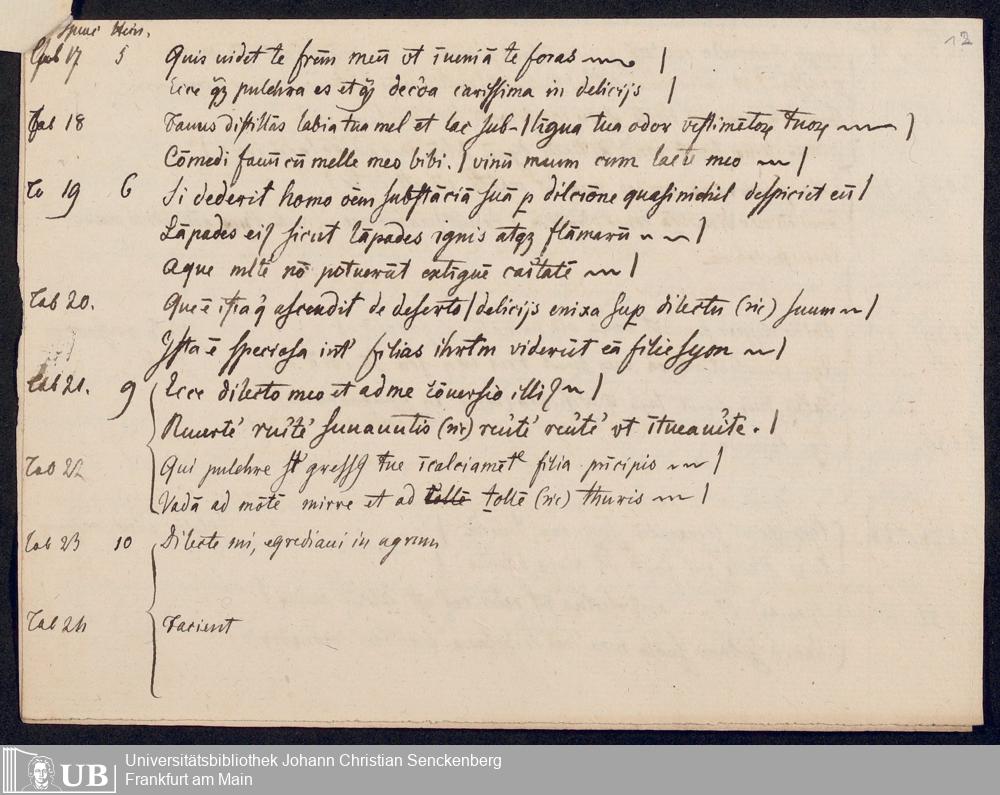 12
Tab 17 5 Quis uidet te frēm meū vt īueniā te foras
Ecce qꝫ pulchra es et qꝫ decōa carissima in delicijs |
Tab 18 Fauus distillās labia tua mel et lac sub- | līgua tua odor vestimētoꝝ tuoꝝ |
Cōmedi fauū cū melle meo bibi. | vinū meum cum lacte meo |
Ta 19 6 Si dederit homo oēm substāciā suā ꝑ dilcōne quasi nichil despiciet eū |
Lāpades eiꝰ sicut lāpades ignis atqꝫ flāmarū |
Aque mlte nō potuerūt extīgue caitatē |
Tab 20. Que ē ista q ascendit de deserto | delicijs enixa suꝑ dilectu (sic) suum |
Ysta ē speciosa int' filias ihrlm viderūt eā filie syon |
Tab 21. 9 Ecce dilecto meo et ad me cōuersio illiꝰ |
(sic) vt ītueamur te. |
Tab 22 Qui pulchre st' gressꝰ tue ī calciamētꝰ filia prīcipis |
Vadā ad mōtē mirre et ad tollē (sic) thuris |
Tab 23 10 Dilecte mi, egrediami in agrum
Tab 24 Facient
UB
Universitätsbibliothek Johann Christian Senckenberg
Frankfurt am Main